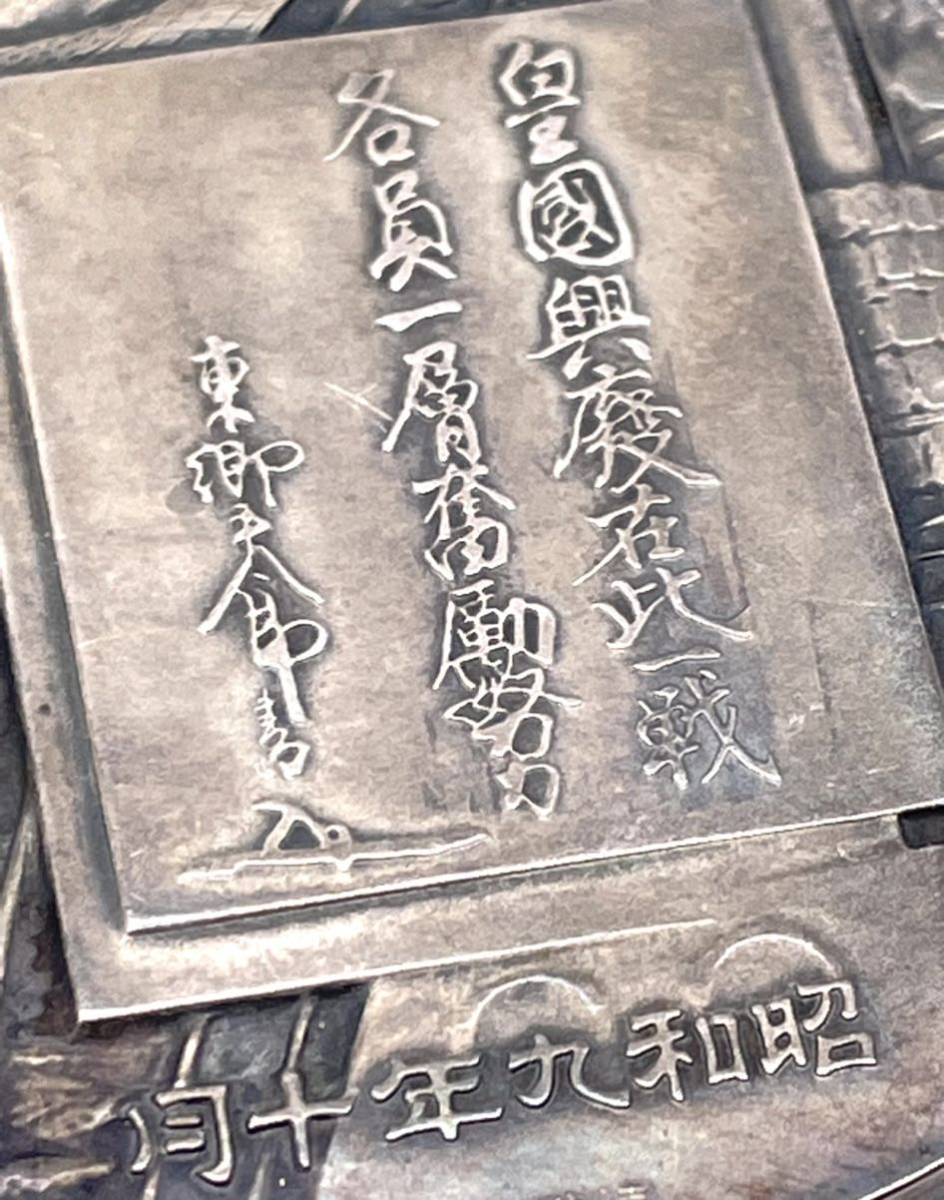 皇國興廢在此一戰
各員一層奮勵努力
東郷平八郎書
昭和九年十月